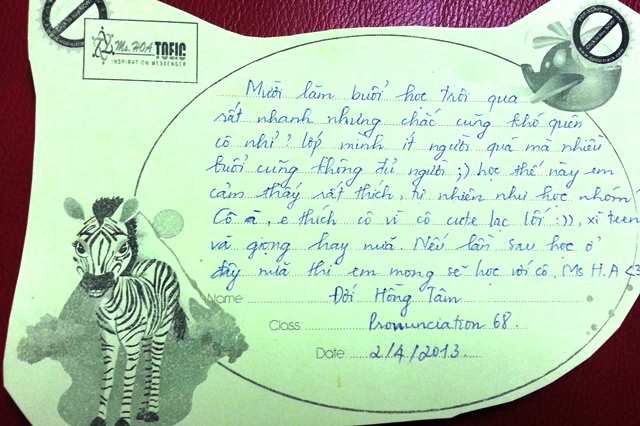 Ms. HOA TOEIC
INSPIRATION MESSENGER
Mười lăm buổi học trôi qua
rất nhanh nhưng chắc cũng khó quên
cô nhỉ? lớp mình ít người quá mà nhiều
buổi cũng không đủ người ;) học thế này em
cảm thấy rất thích, tự nhiên như học nhóm
Cô à, e thích cô vì cô cute lạc lối :)), xì teen
và giọng hay nữa. Nếu lần sau học ở
đây nữa thì em mong sẽ học với cô, Ms H.A <3
Name Đới Hồng Tâm
Class Pronunciation 68.
Date 2/4/2013